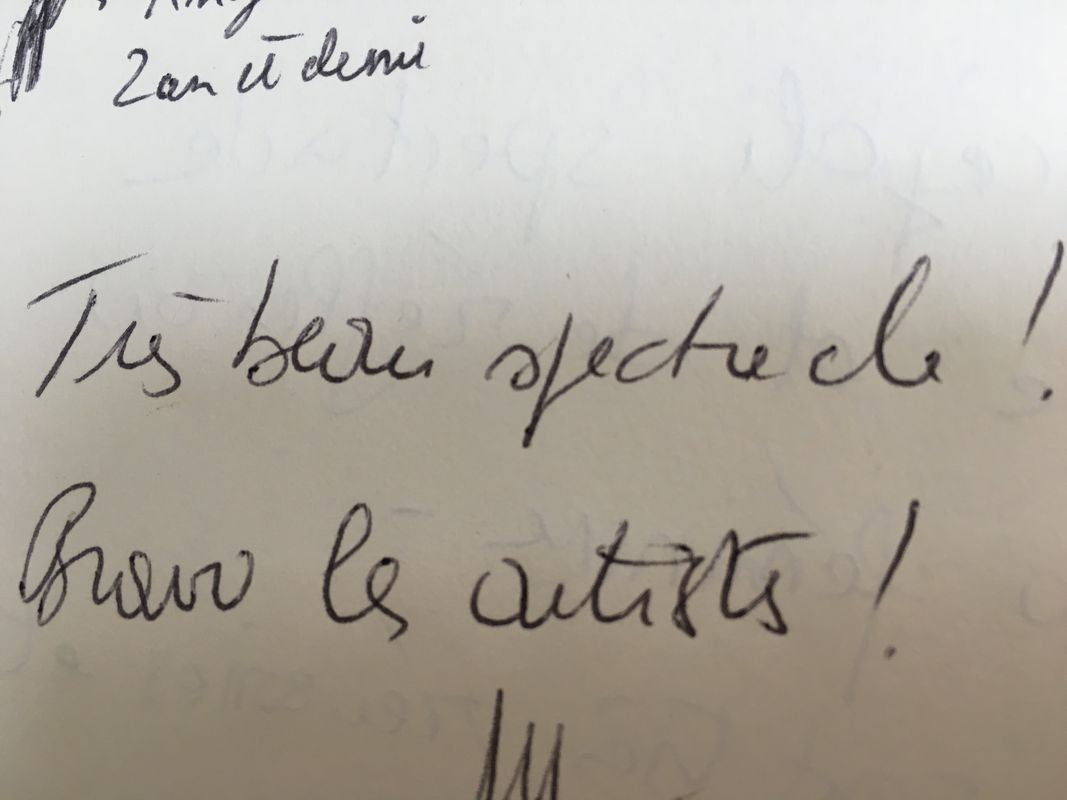 2 an et demi
Très beau spectacle !
Bravo les artistes !